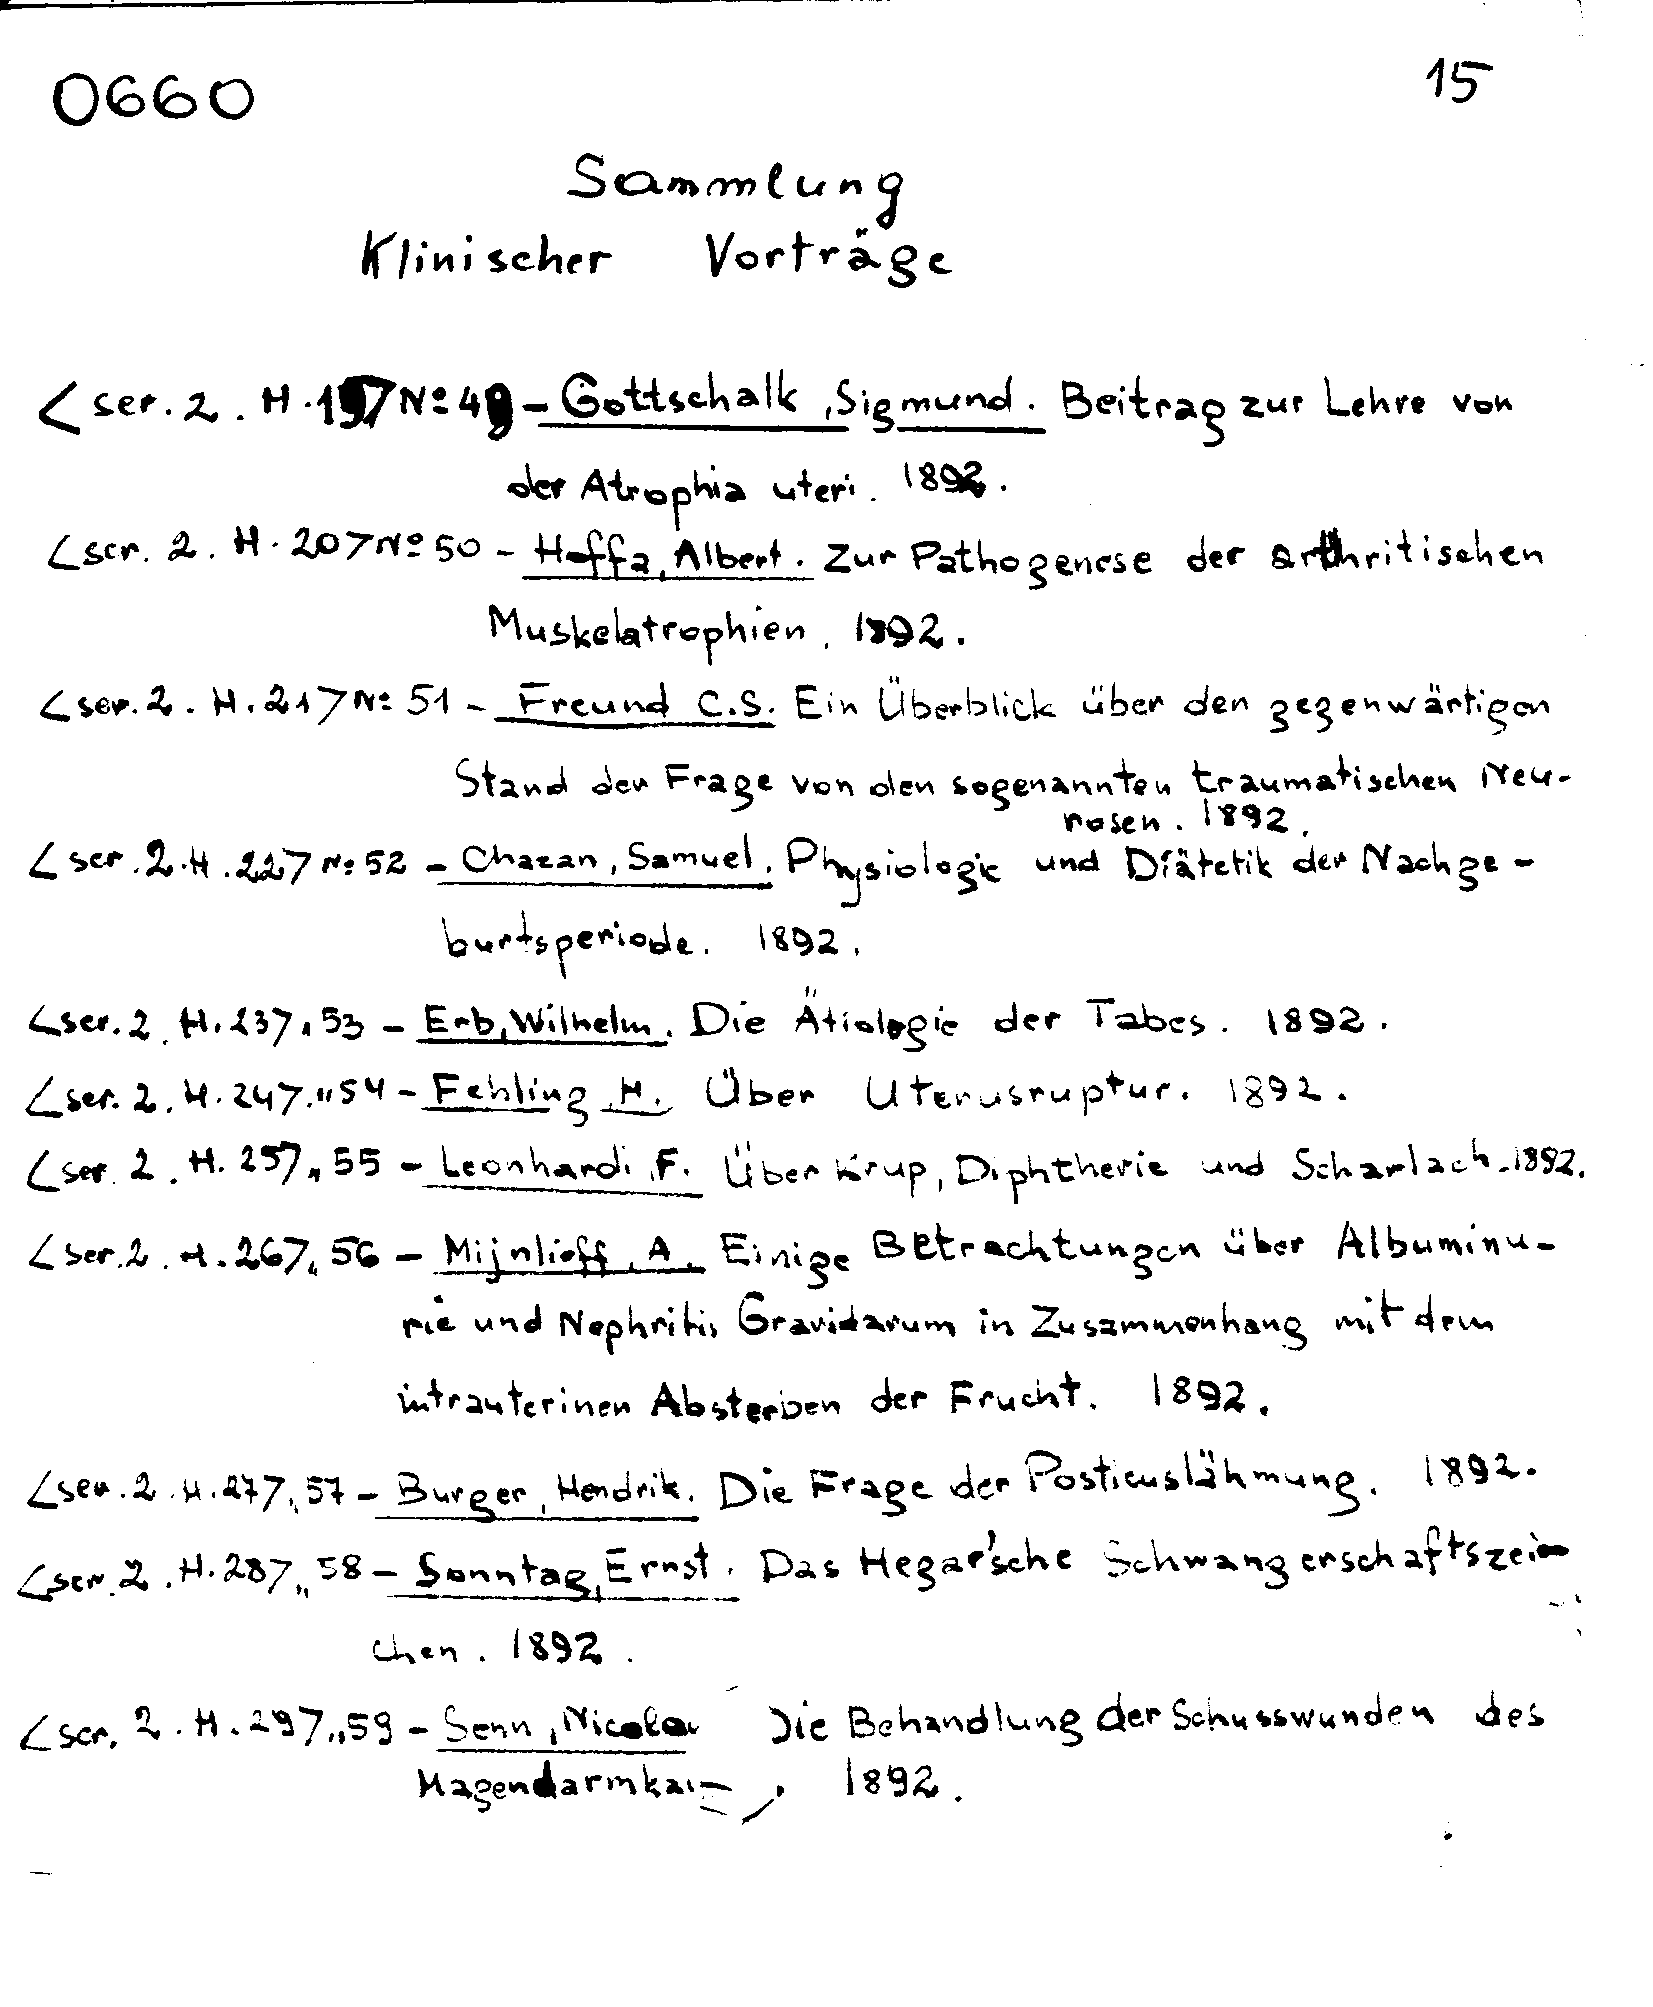 0660 15
Sammlung
Klinischer Vorträge
<ser. 2. H. 19> Nº 49 - Gottschalk, Sigmund. Beitrag zur Lehre von
der Atrophia uteri. 1892.
<ser. 2. H. 20> Nº 50 - Hoffa, Albert. Zur Pathogenese der arthritischen
Muskelatrophien. 1892.
<ser. 2. H. 21> Nº 51 - Freund C.S. Ein Überblick über den gegenwärtigen
Stand der Frage von den sogenannten traumatischen Neu-
rosen. 1892.
<ser. 2. H. 22> Nº 52 - Chazan, Samuel. Physiologie und Diätetik der Nachge-
burtsperiode. 1892.
<ser. 2. H. 23> " 53 - Erb, Wilhelm. Die Ätiologie der Tabes. 1892.
<ser. 2. H. 24> " 54 - Fehling H. Über Uterusruptur. 1892.
<ser. 2. H. 25> " 55 - Leonhardi, F. Über Krup, Diphtherie und Scharlach. 1892.
<ser. 2. H. 26> " 56 - Mijnlieff, A. Einige Betrachtungen über Albuminu-
rie und Nephritis Gravidarum in Zusammenhang mit dem
intrauterinen Absterben der Frucht. 1892.
<ser. 2. H. 27> " 57 - Burger, Hendrik. Die Frage der Posticuslähmung. 1892.
<ser. 2. H. 28> " 58 - Sonntag, Ernst. Das Hegar'sche Schwangerschaftszei-
chen. 1892.
<ser. 2. H. 29> " 59 - Senn, Die Behandlung der Schusswunden des
1892.